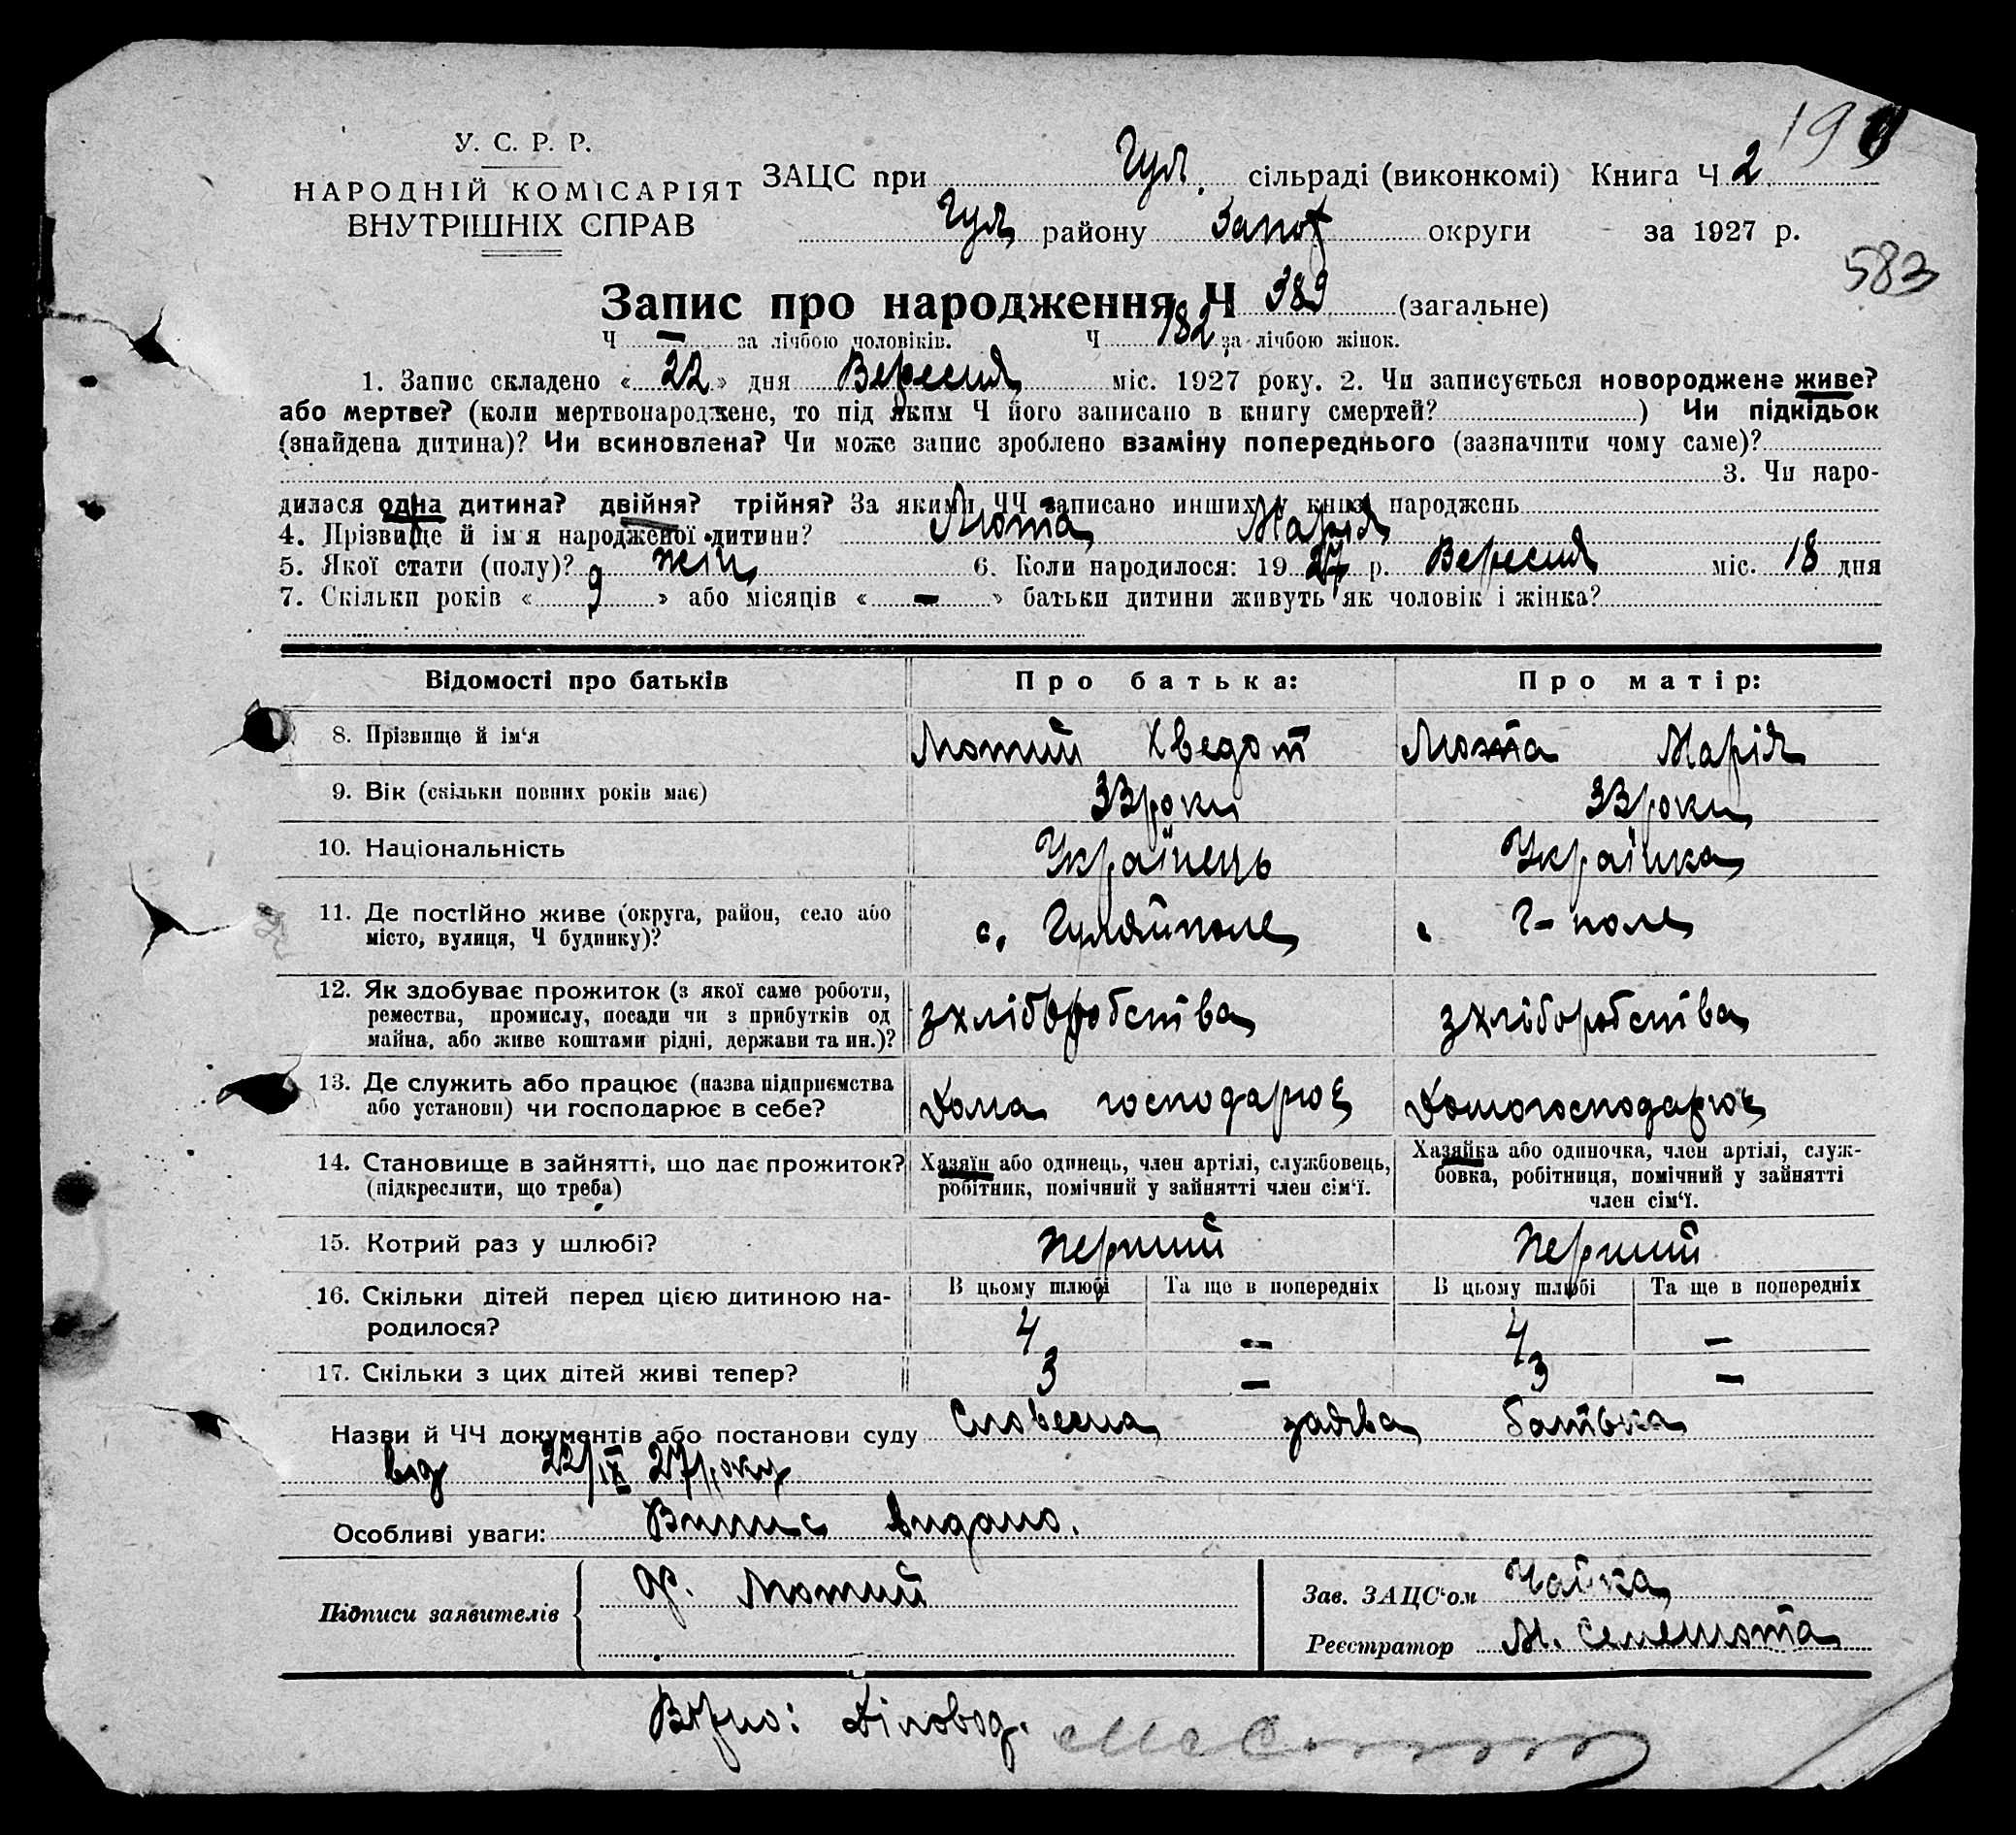 У. С. Р. Р.
НАРОДНІЙ КОМІСАРІЯТ
ВНУТРІШНІХ СПРАВ
199
ЗАЦС при Гул. сільраді (виконкомі) Книга Ч 2
Гул. району Запор. округи за 1927 р.
583
Запис про народження Ч 389 (загальне)
Ч — за лічбою чоловіків. Ч 182 за лічбою жінок.
1. Запис складено «22» дня Вересня міс. 1927 року. 2. Чи записується новороджене живе?
або мертве? (коли мертвонароджене, то під яким Ч його записано в книгу смертей? ) Чи підкідьок
(знайдена дитина)? Чи всиновлена? Чи може запис зроблено взаміну попереднього (зазначити чому саме)?
3. Чи наро-
дилася одна дитина? двійня? трійня? За якими ЧЧ записано инших у книзі народжень
4. Прізвище й ім'я народженої дитини? Люта Марія
5. Якої стати (полу)? жін. 6. Коли народилося: 1927 р. Вересня міс. 18 дня
7. Скільки років «9» або місяців «—» батьки дитини живуть як чоловік і жінка?
Відомості про батьків Про батька: Про матір:
8. Прізвище й ім'я Лютий Хведот Люта Марія
9. Вік (скільки повних років має) 33 роки 33 роки
10. Національність Українець Українка
11. Де постійно живе (округа, район, село або
місто, вулиця, Ч будинку)? с. Гуляйполе Г-поле
12. Як здобуває прожиток (з якої саме роботи,
ремества, промислу, посади чи з прибутків од
майна, або живе коштами рідні, держави та ин.)? з хліборобства з хліборобства
13. Де служить або працює (назва підприємства
або установи) чи господарює в себе? Дома господарює Домогосподарює
14. Становище в зайнятті, що дає прожиток?
(підкреслити, що треба)
Хазяїн або одинець, член артілі, службовець,
робітник, помічний у зайнятті член сім'ї.
Хазяйка або одиночка, член артілі, служ-
бовка, робітниця, помічний у зайнятті
член сім'ї.
15. Котрий раз у шлюбі? Перший Перший
В цьому шлюбі Та ще в попередніх В цьому шлюбі Та ще в попередніх
16. Скільки дітей перед цією дитиною на-
родилося? 4 — 4 —
17. Скільки з цих дітей живі тепер? 3 — 3 —
Назви й ЧЧ документів або постанови суду Словесна заява батька
від 22/IX 27 року
Особливі уваги: Випис видано.
Підписи заявителів Ф. Лютий
Зав. ЗАЦС'ом Чайка
Реєстратор М.
Вірно: Діловод.